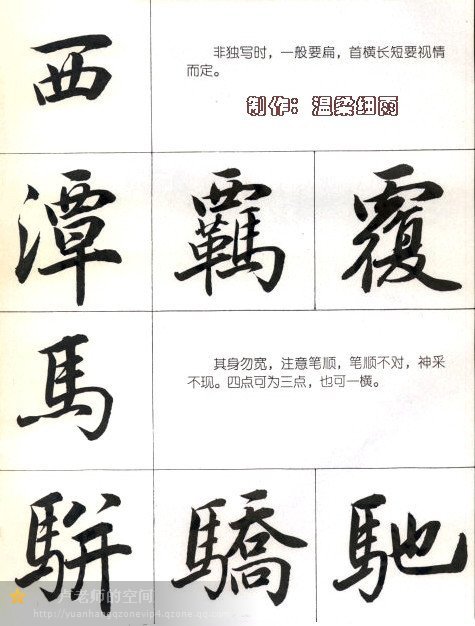 西
非独写时，一般要扁，首横长短要视情
而定。
制作：温柔细雨
潭 覊 覆
馬
其身勿宽，注意笔顺，笔顺不对，神采
不现。四点可为三点，也可一横。
駢 驕 馳
卢老师的空间
http://yuanhangqzonevip4.qzone.qq.com